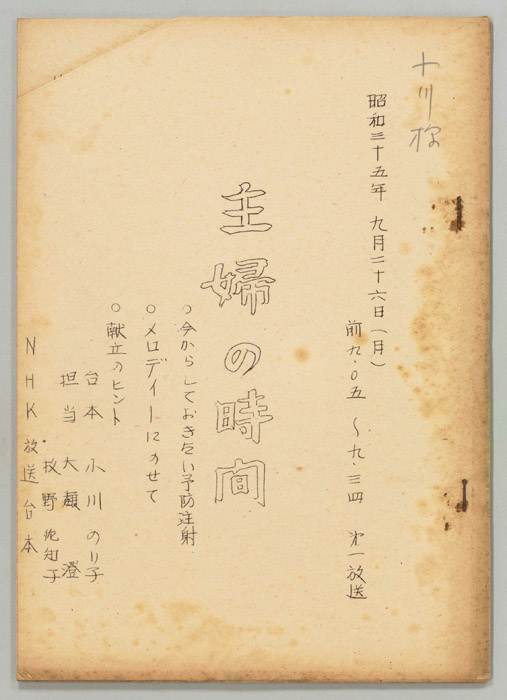 十川様
昭和三十五年 九月二十六日(月)
前九・〇五 〜九・三四 第一放送
主婦の時間
○今からしておきたい予防注射
○メロディーにのせて
○献立のヒント
台本 小川のり子
担当 大 澄
牧野 子
NHK放送台本